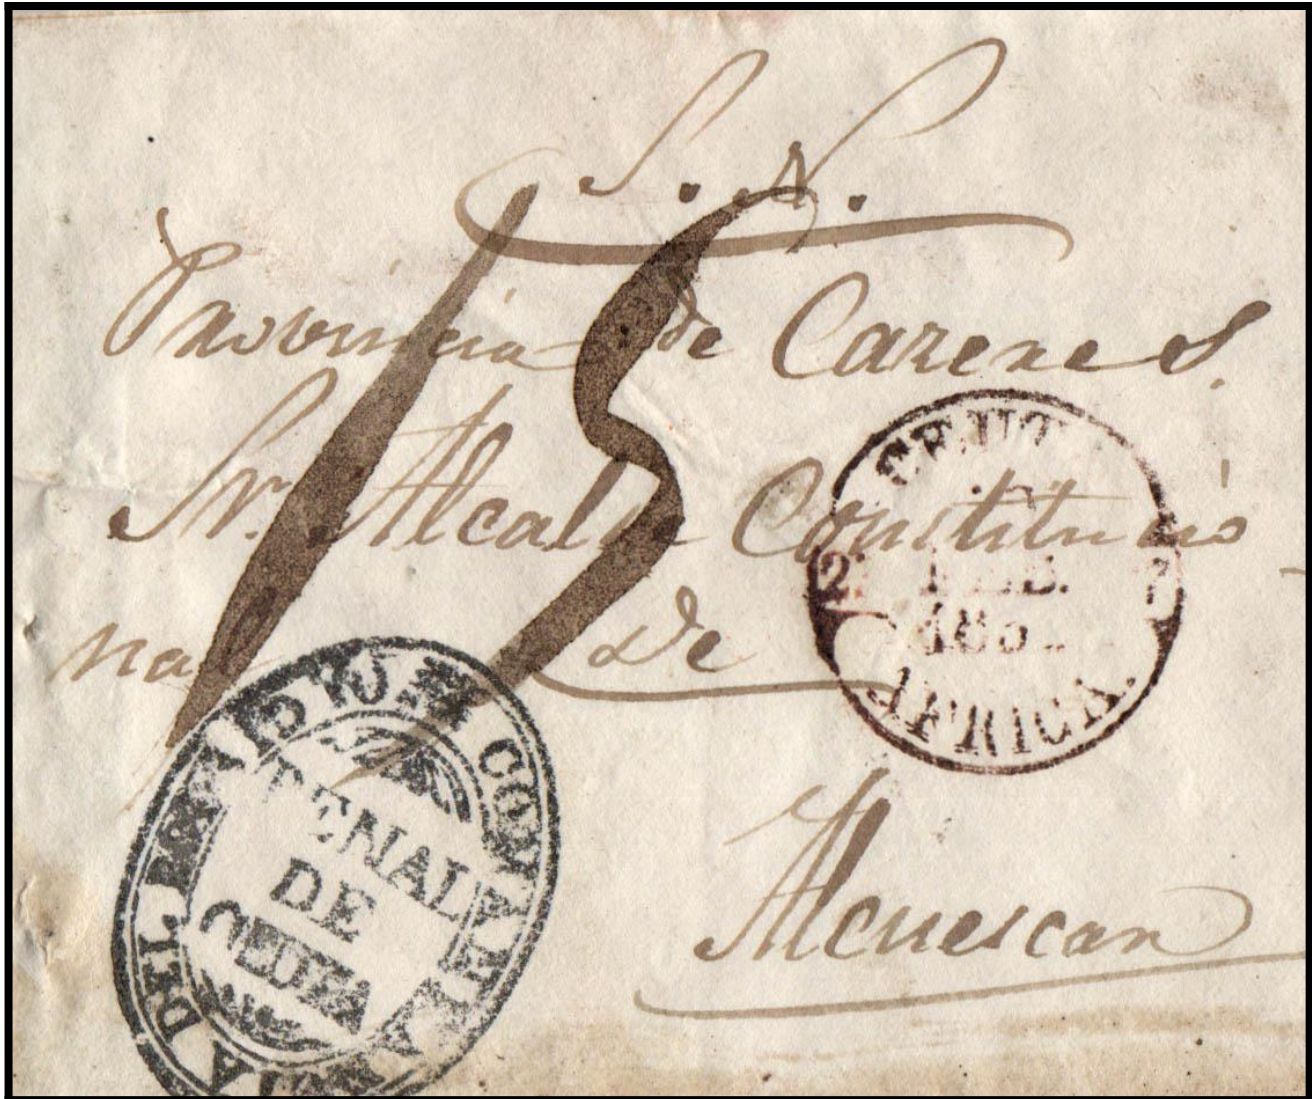 S. N.
Provincia de Cazenes.
Sr. Alcalde Constitucio
nal de
Alcuescar
15
CEUT
2 FEB.
185
AFRICA.
COMAN
DEL
PENAL
DE
CEUTA